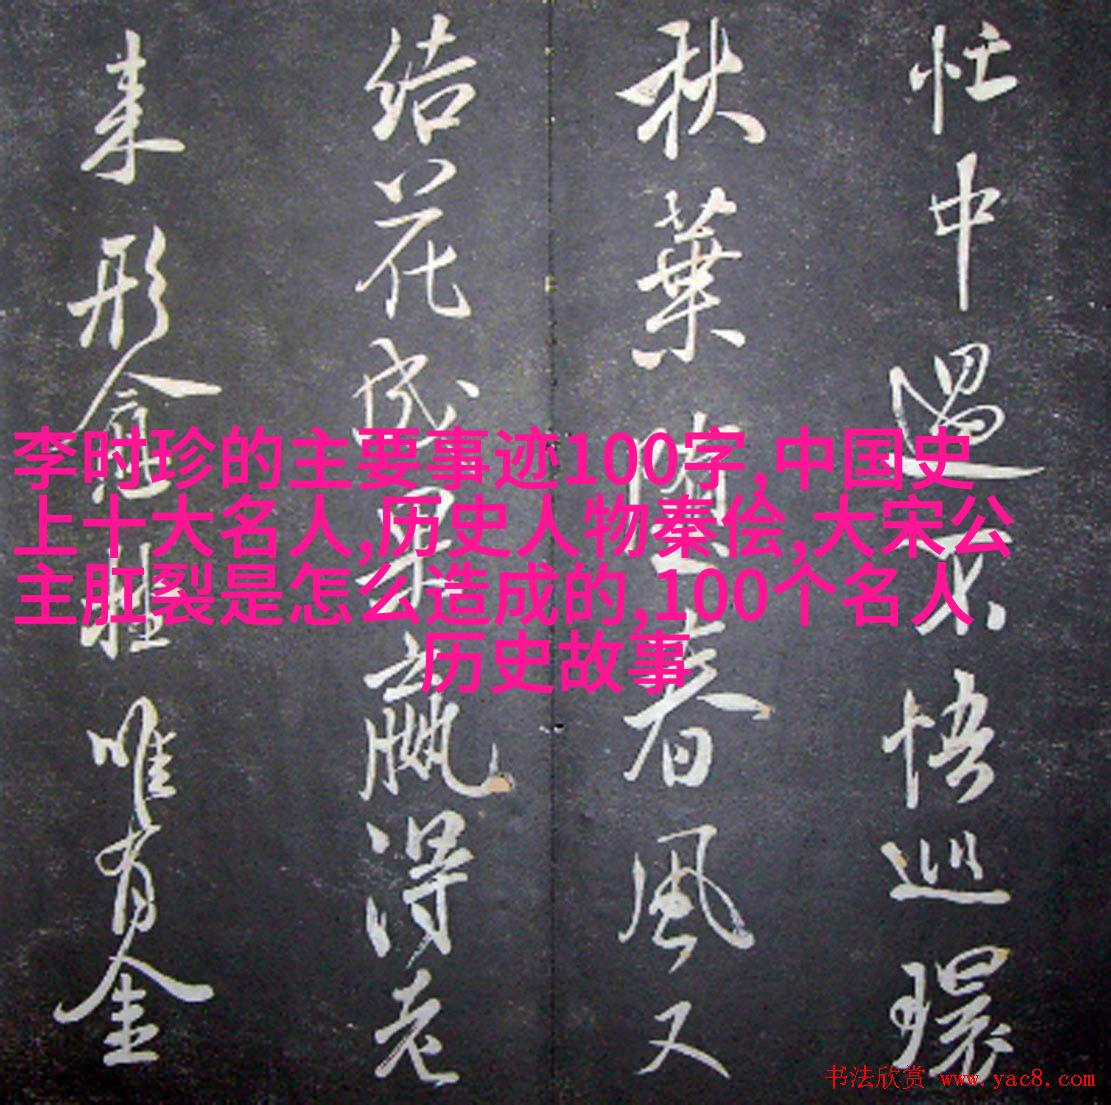 忙中過不悟巡環
秋葉春風又
结花成果嬴得老
来形唯有金
李时珍的主要事迹100字,中国史
上十大名人,历史人物秦侩,大宋公
主肛裂是怎么造成的,100个名人
历史故事
书法欣赏 www.yac8.com